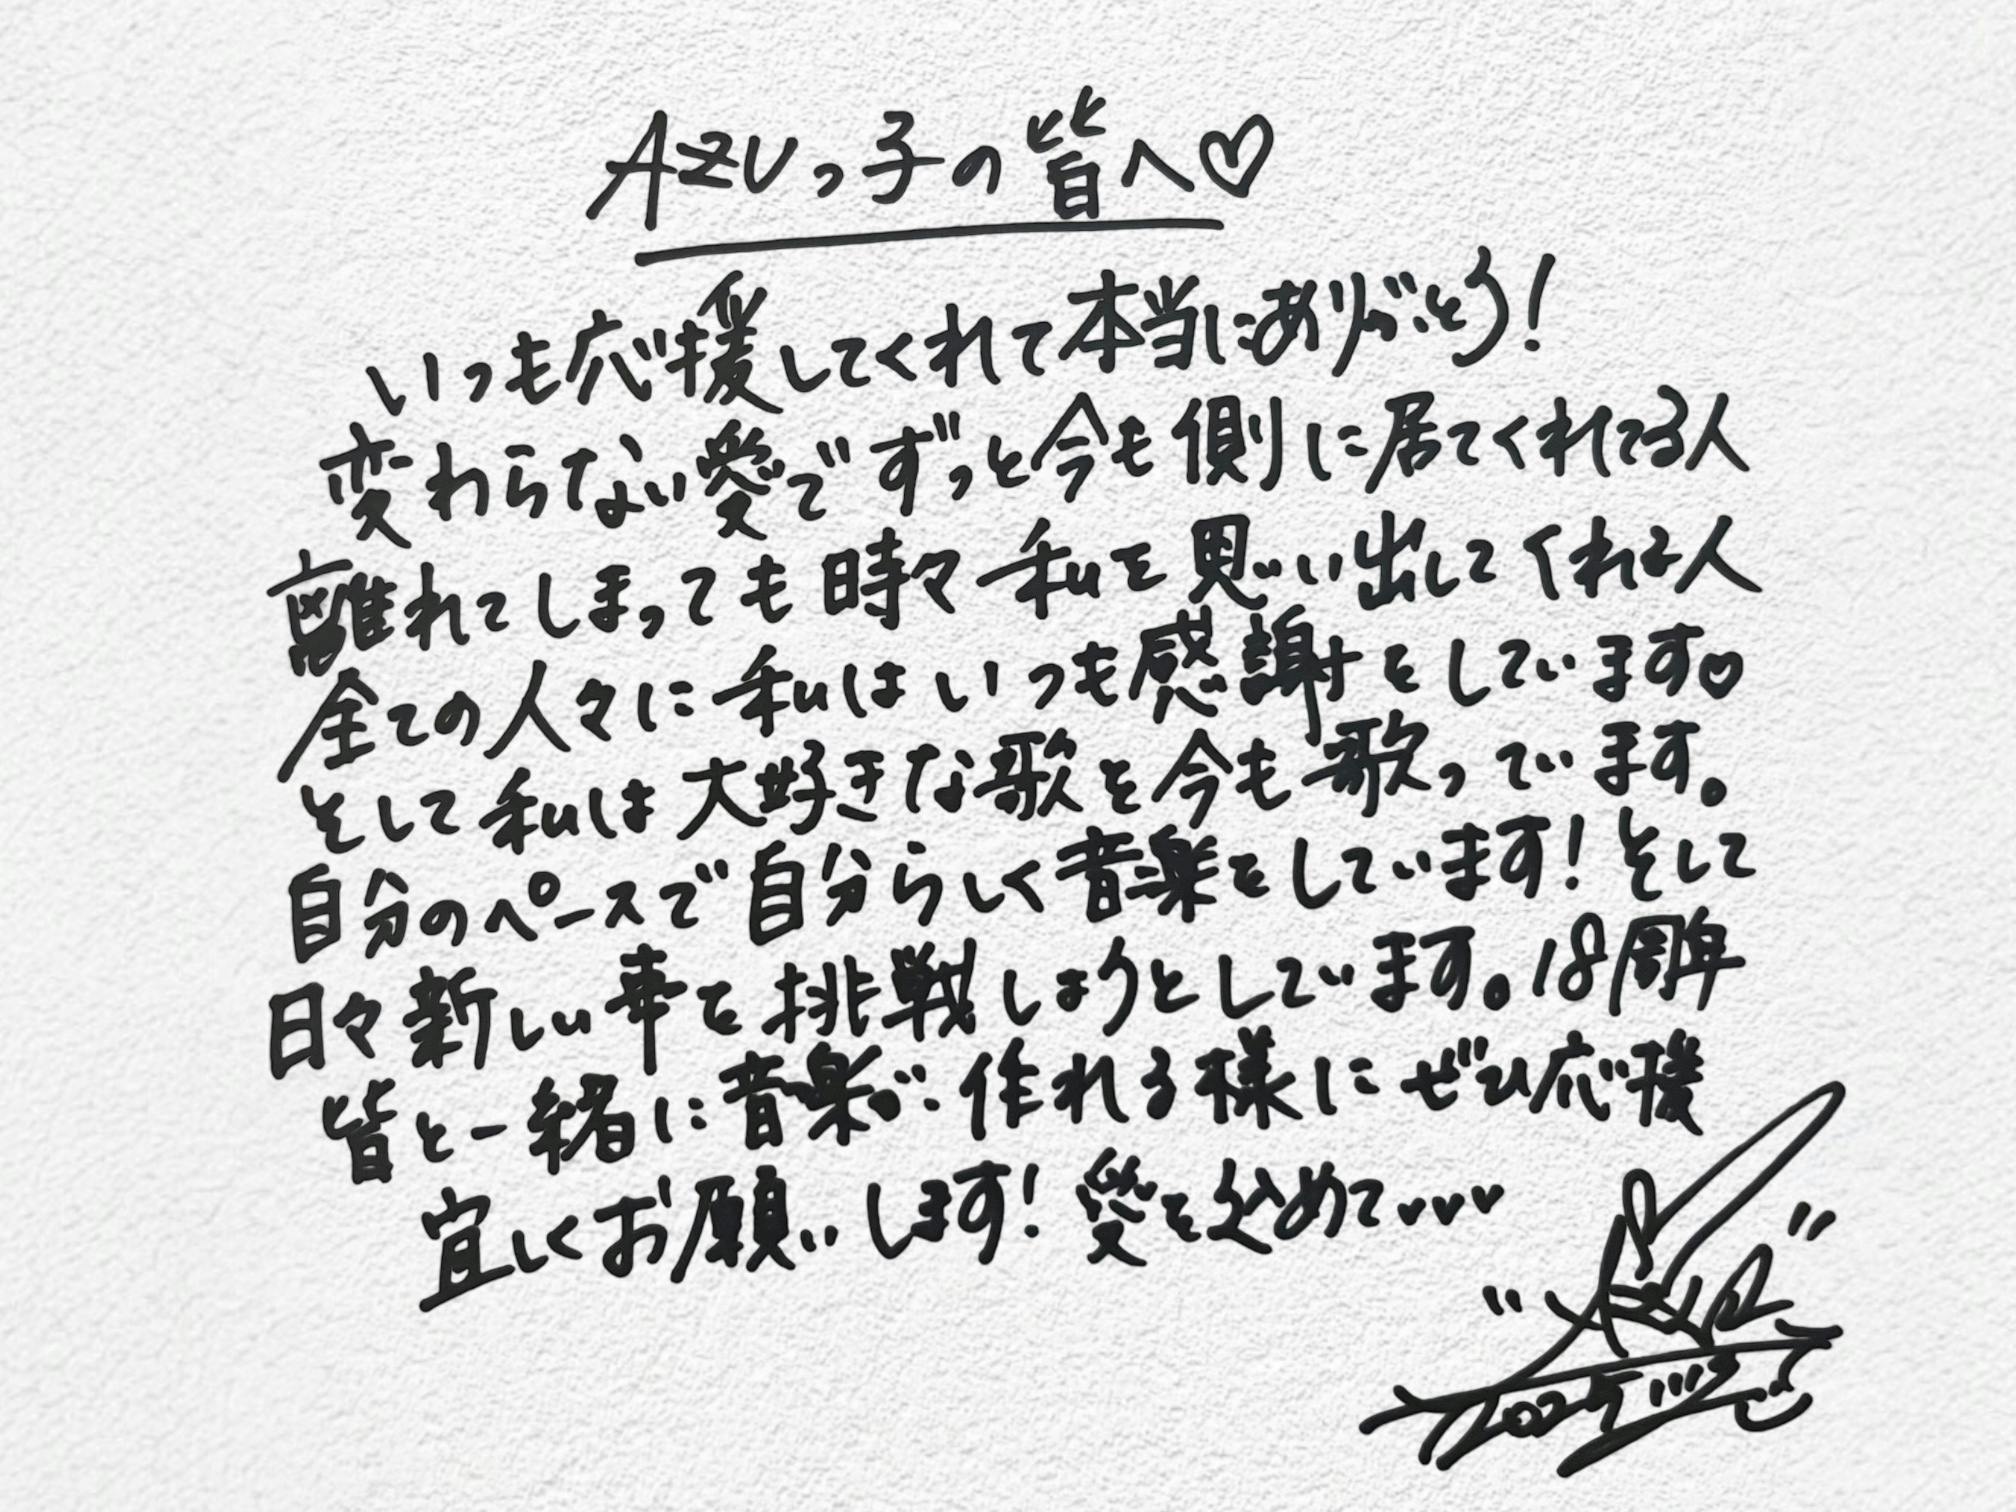 AZUっ子の皆へ♡
いつも応援してくれて本当にありがとう!
変わらない愛でずっと今も側に居てくれてる人
離れてしまっても時々私を思い出してくれる人
全ての人々に私はいつも感謝をしています♡
そして私は大好きな歌を今も歌っています。
自分のペースで自分らしく音楽をしています!そして
日々新しい事を挑戦しようとしています。18周年
皆と一緒に音楽が作れる様にぜひ応援
宜しくお願いします!愛を込めて♥♥♥
2025